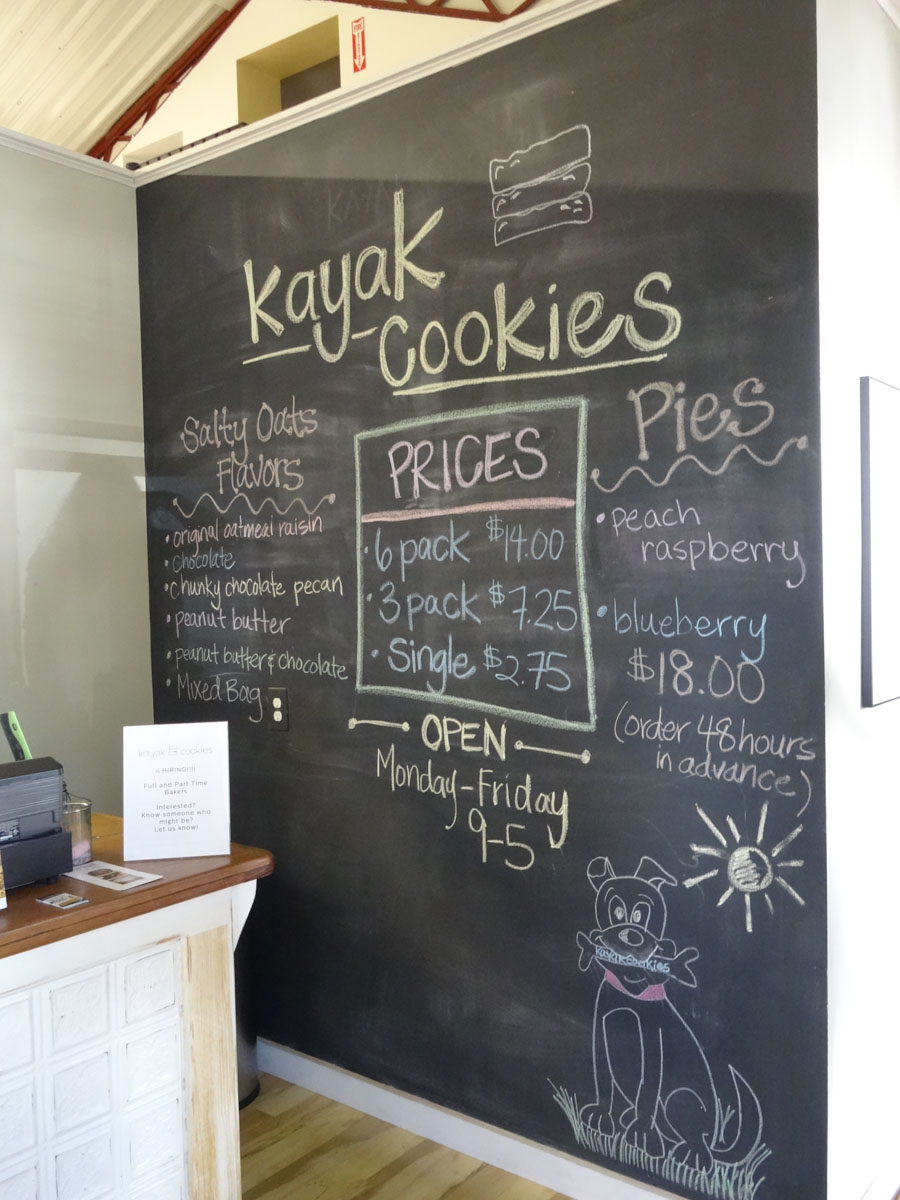 FIRE
KAYAK
Kayak
Cookies
Salty Oats
Flavors
• original oatmeal raisin
• chocolate
• chunky chocolate pecan
• peanut butter
• peanut butter & chocolate
• Mixed Bag
PRICES
• 6 pack $14.00
• 3 pack $7.25
• Single $2.75
OPEN
Monday-Friday
9-5
Pies
• peach
raspberry
• blueberry
$18.00
(order 48 hours
in advance)
kayak cookies
kayak cookies
is HIRING!!!!
Full and Part Time
Bakers
Interested?
Know someone who
might be?
Let us know!